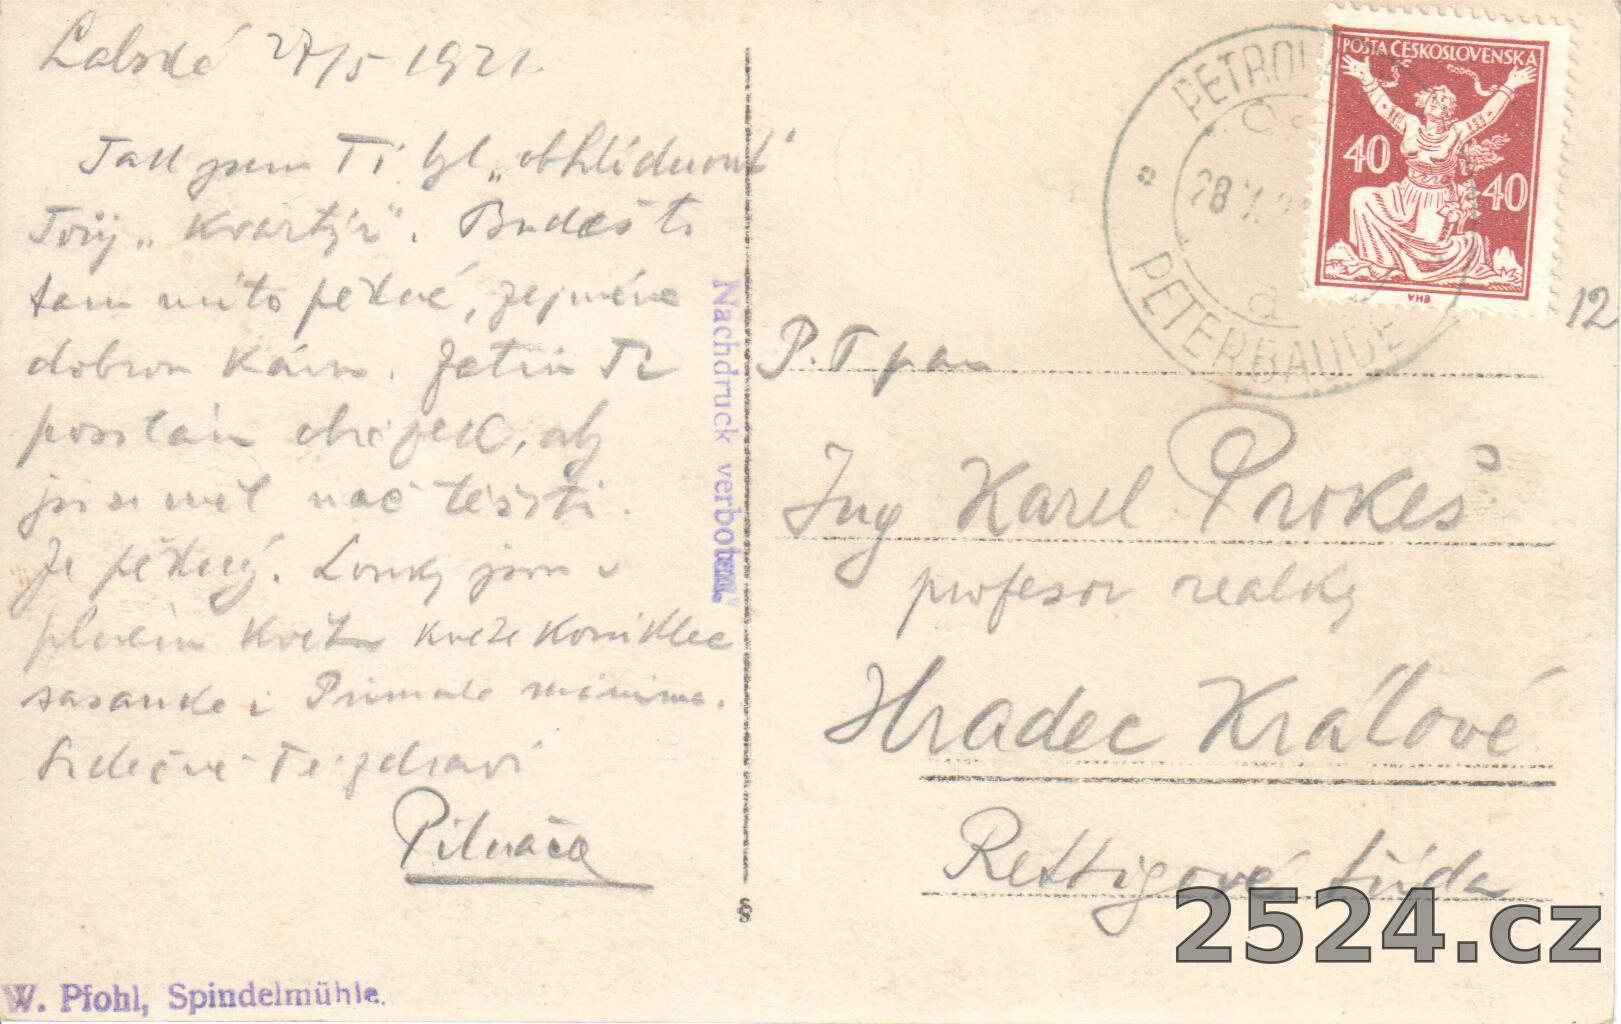 Labské 27/5 1921.
Tak jsem Ti byl „obhlídnout“
Tvůj „Kvartýr“. Budeš ti
tam míto pěkné, zejména
dobrou
posílám obrázek, aby
jsi měl nač těšiti.
Je pěkný. Louky jsou v
plném květu kvete Koniklec
sasanka i Primula minima.
Srdečně Tě zdraví
Pilnáček
W. Pfohl, Spindelmühle.
Nachdruck verboten.
POŠTA ČESKOSLOVENSKÁ
40 40
VHB
28 V.
PETERBAUDE
12
P. T pan
Ing Karel Prokeš
profesor reálky
Hradec Králové
Rettigové třída
2524.cz